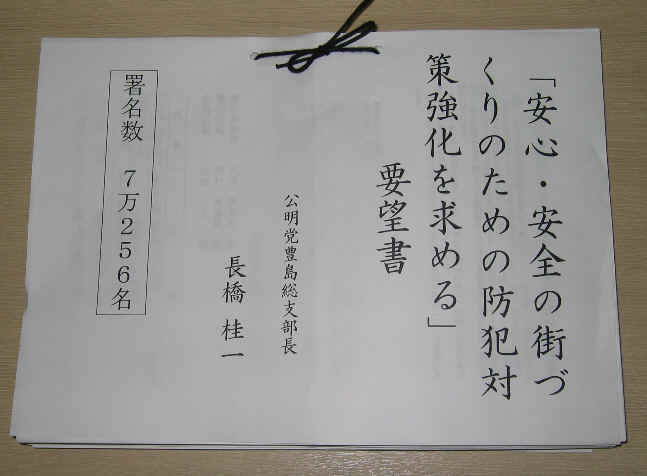 「安心・安全の街づ
くりのための防犯対
策強化を求める」
要望書
公明党豊島総支部長
長橋 桂一
署名数 7万256名